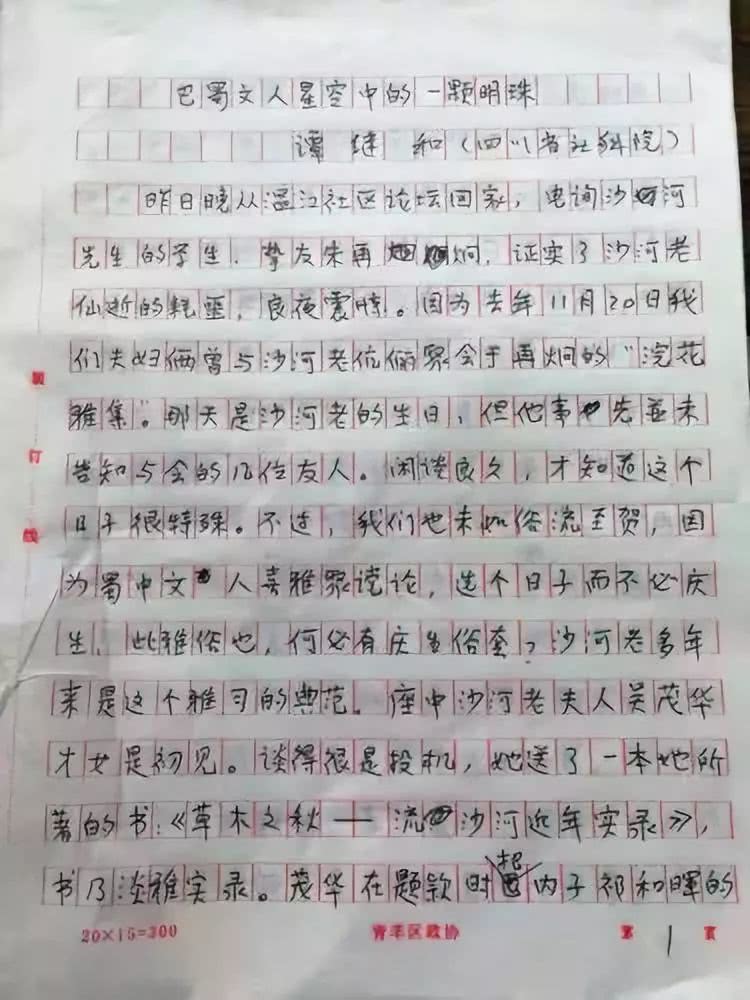 巴蜀文人星空中的一颗明珠
谭继和(四川省社科院)
昨日晚从温江社区论坛回家，电询沙河
先生的学生、挚友朱再炯，证实了沙河老
仙逝的耗噩，良夜震惊。因为去年11月20日我
们夫妇俩曾与沙河老伉俪聚会于再炯的“浣花
雅集”。那天是沙河老的生日，但他事先並未
告知与会的几位友人。闲谈良久，才知道这个
日子很特殊。不过，我们也未如俗流至贺，因
为蜀中文人喜雅聚谠论，选个日子而不必庆
生，此雅俗也，何必有庆生俗套？沙河老多年
来是这个雅习的典范。座中沙河老夫人吴茂华
才女是初见。谈得很是投机，她送了一本她所
著的书：《草木之秋——流沙河近年实录》，
书乃淡雅实录。茂华在题款时把内子祁和晖的
20×15=300 青羊区政协 第1页
装订线